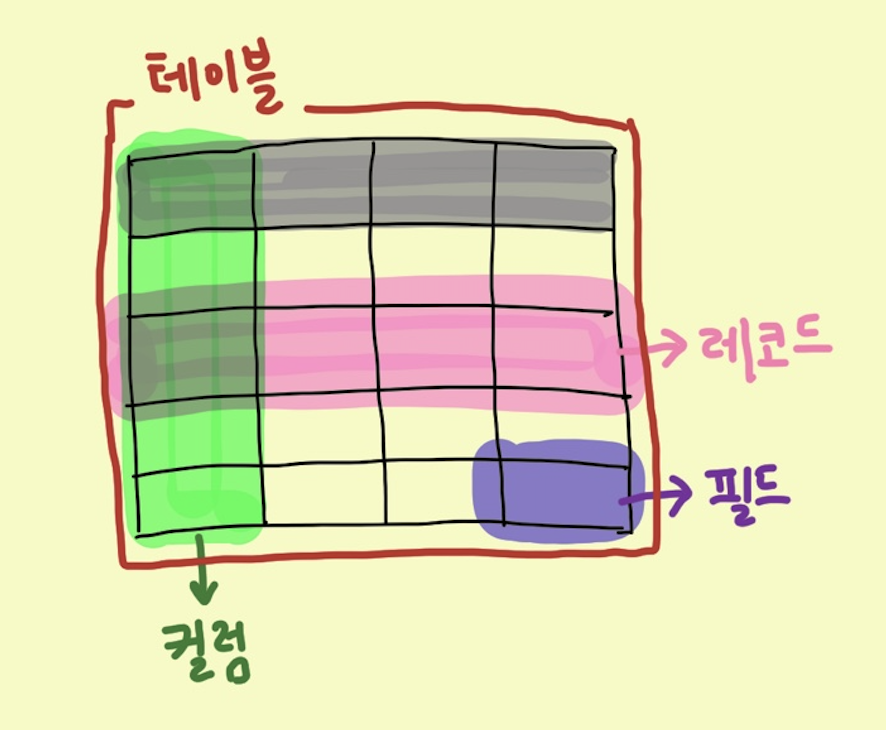 테이블
레코드
필드
컬럼